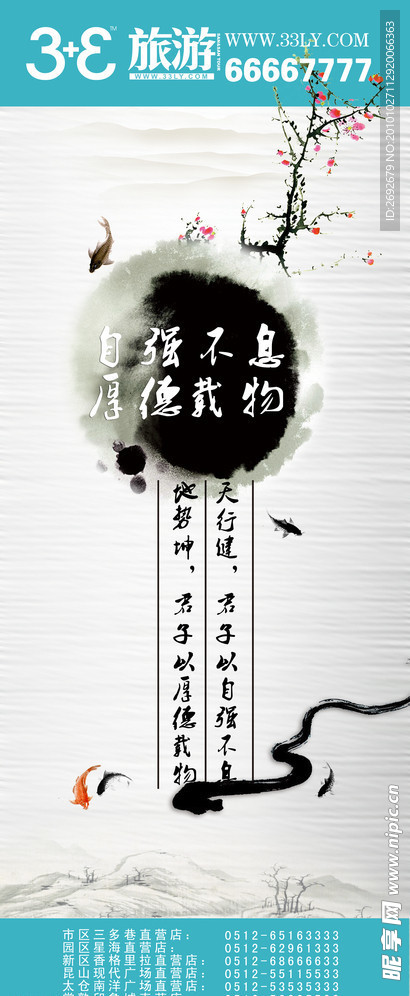 3+E™ 旅游 WWW.33LY.COM
WWW.33LY.COM 66667777
自强不息
厚德载物
天行健，君子以自强不息
地势坤，君子以厚德载物
市区三多巷直营店： 0512-65163333
园区星海直营店： 0512-62961333
新区香格里拉直营店： 0512-68666633
昆山现代广场直营店： 0512-55115533
太仓南洋广场直营店： 0512-53535333
ID:2692679 NO:20101027112920066363
昵享网 www.nipic.cn